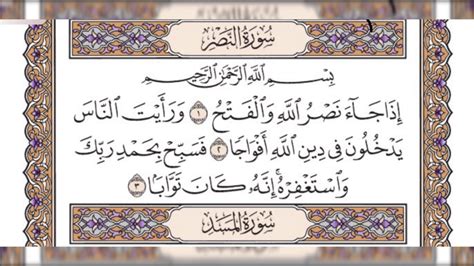 سُورَةُ النَّصْرِ
بِسْمِ اللَّهِ الرَّحْمَٰنِ الرَّحِيمِ
إِذَا جَاءَ نَصْرُ اللَّهِ وَالْفَتْحُ ١ وَرَأَيْتَ النَّاسَ
يَدْخُلُونَ فِي دِينِ اللَّهِ أَفْوَاجًا ٢ فَسَبِّحْ بِحَمْدِ رَبِّكَ
وَاسْتَغْفِرْهُ إِنَّهُ كَانَ تَوَّابًا ٣
سُورَةُ الْمَسَدِ